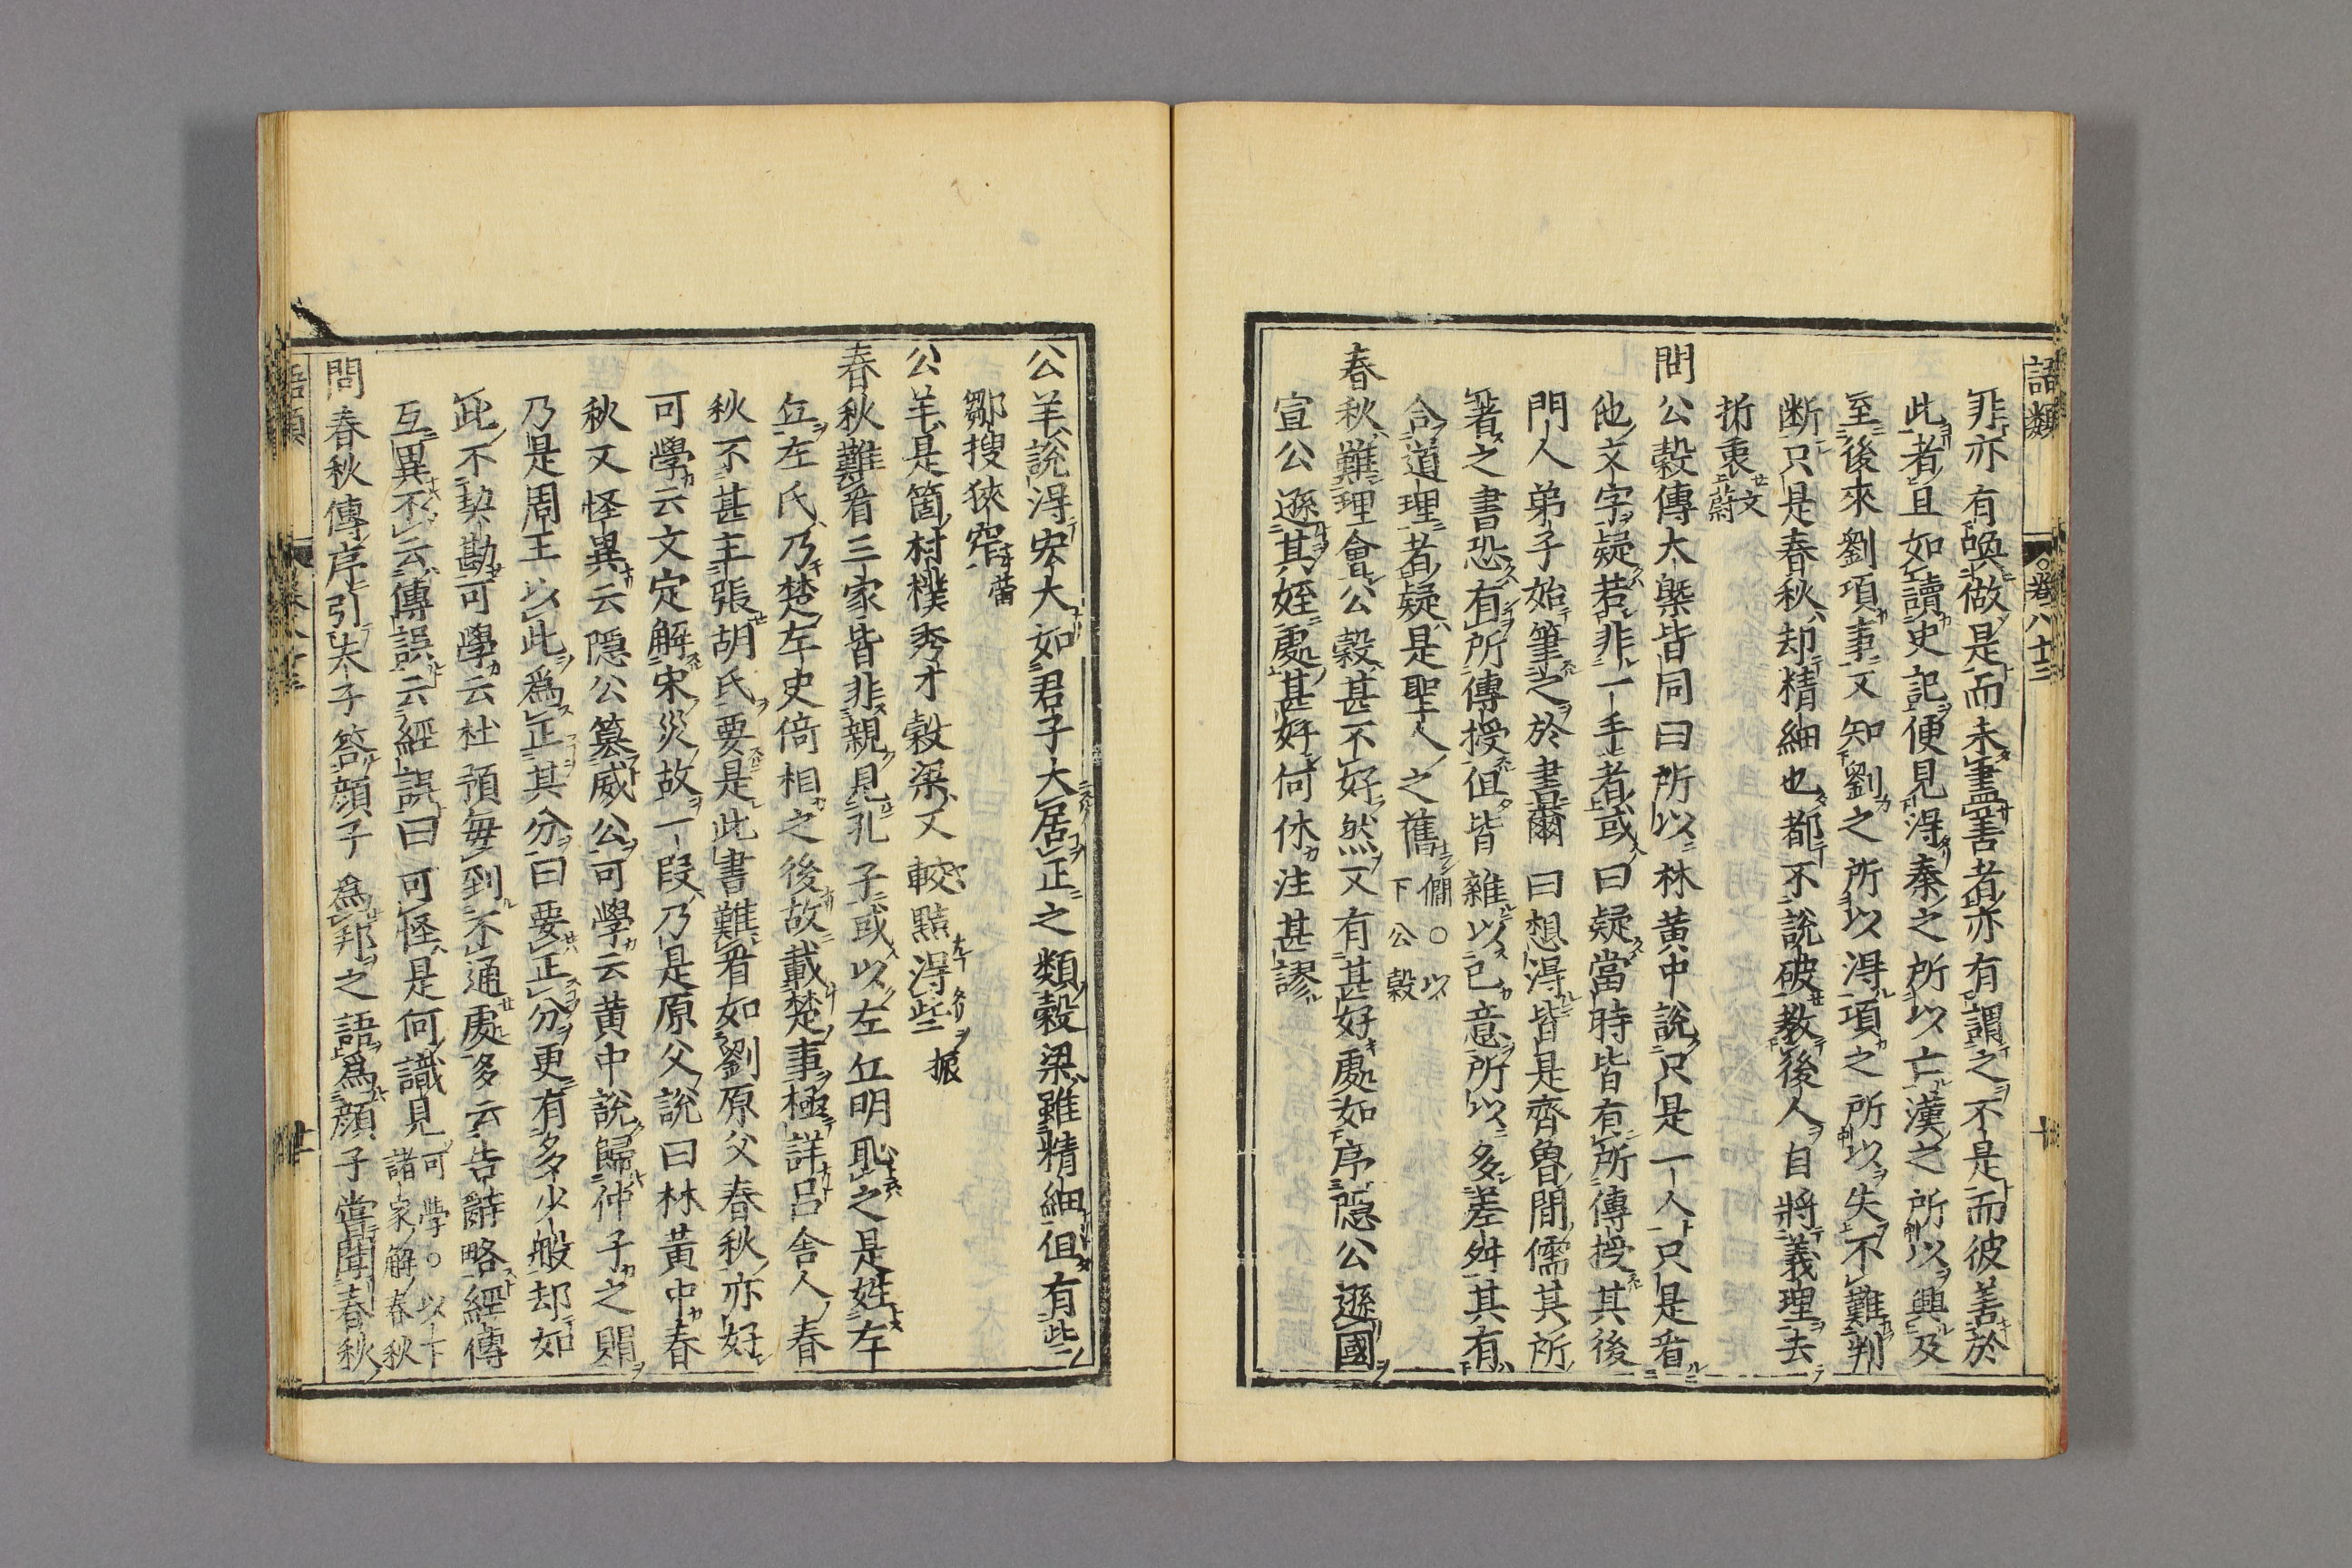 語類
卷八十三
十
罪亦有喚做是而未盡善者亦有謂之不是而彼善於
此者且如讀史記便見得秦之所以亡漢之所以興及
至後來劉項事又知劉之所以得項之所以失不難判
断只是春秋却精細也都不說破教後人自將義理去
折衷文蔚
問公穀傳大槩皆同曰所以林黄中說只是一人只是看
他文字疑若非一手者或曰疑當時皆有所傳授其後
門人弟子始筆之於書爾曰想得皆是齊魯間儒其所
著之書恐有所傳授但皆雜以己意所以多差舛其有
合道理者疑是聖人之舊僩○以下公穀
春秋難理會公穀甚不好然又有甚好處如序隱公遜國
宣公遜其姪處甚好何休注甚謬
公羊說得宏大如君子大居正之類穀梁雖精細但有些
鄒搜狹窄𦶜
公羊是箇村樸秀才穀梁又較黠得些振
春秋難看三家皆非親見孔子或以左丘明恥之是姓左
丘左氏乃楚左史倚相之後故載楚事極詳呂舍人春
秋不甚主張胡氏要是此書難看如劉原父春秋亦好
可學云文定解宋災故一段乃是原父說曰林黄中春
秋又怪異云隱公簒威公可學云黄中說歸仲子之賵
乃是周王以此爲正其分曰要正分更有多少般却如
此不契勘可學云杜預每到不通處多云告辭略經傳
互異不云傳誤云經誤曰可怪是何識見可學○以下諸家解春秋
問春秋傳序引夫子答顔子爲邦之語爲顔子嘗聞春秋